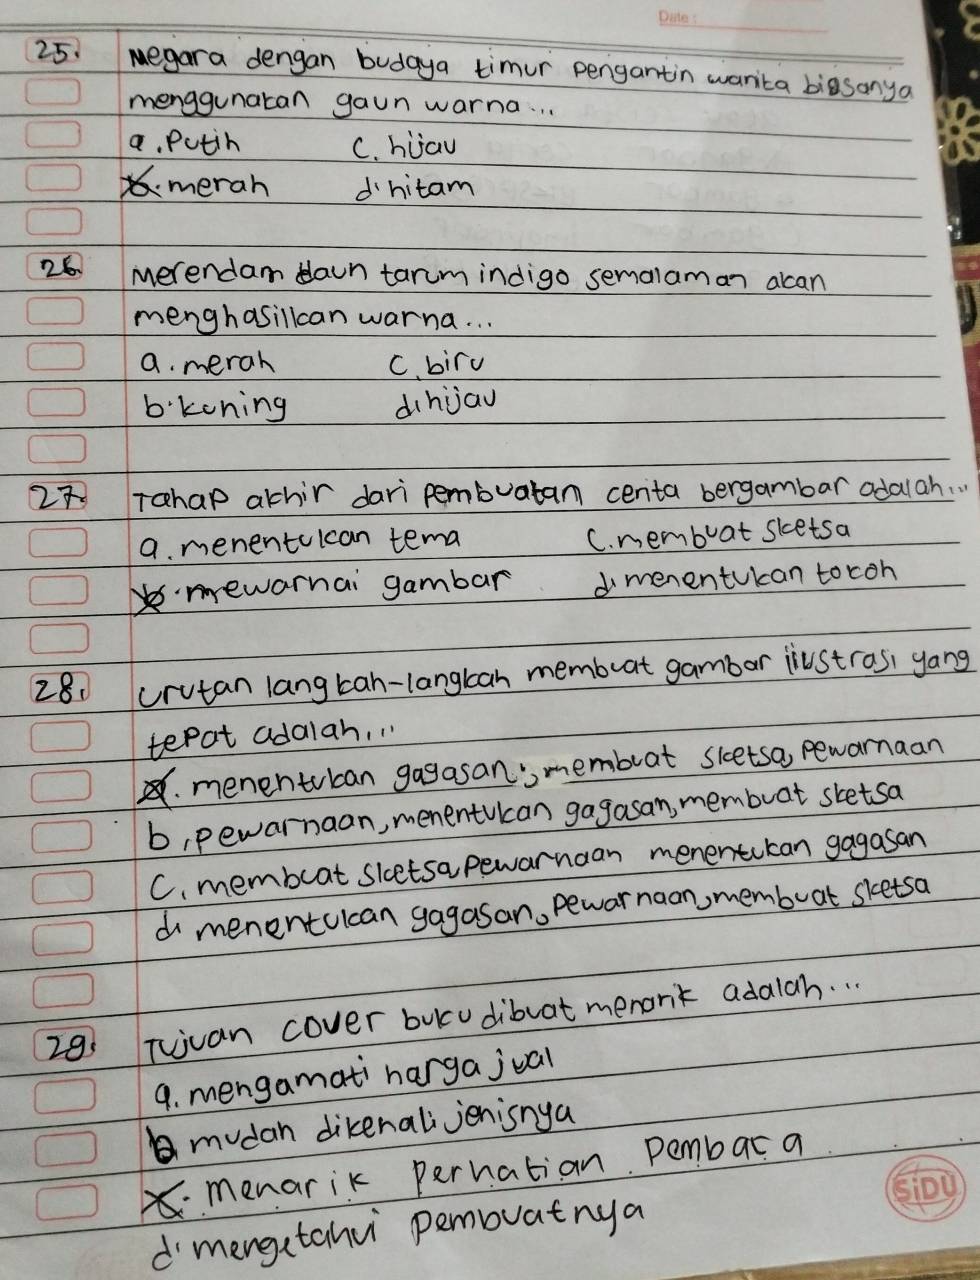 Date :
25. Negara dengan budaya timur pengantin wanita biasanya
menggunakan gaun warna...
a. Putih c. hijau
b. merah d. hitam
26. Merendam daun tarum indigo semalaman akan
menghasilkan warna...
a. merah c. biru
b. kuning d. hijau
27. Tahap akhir dari pembuatan cerita bergambar adalah...
a. menentukan tema c. membuat sketsa
b. mewarnai gambar d. menentukan tokoh
28. urutan langkah-langkah membuat gambar ilustrasi yang
tepat adalah...
a. menentukan gagasan, membuat sketsa, pewarnaan
b. pewarnaan, menentukan gagasan, membuat sketsa
c. membuat sketsa, pewarnaan menentukan gagasan
d. menentukan gagasan, pewarnaan, membuat sketsa
29. Tujuan cover buku dibuat menarik adalah...
a. mengamati harga jual
b mudah dikenali jenisnya
c. menarik perhatian pembaca
d. mengetahui pembuatnya
SiDU